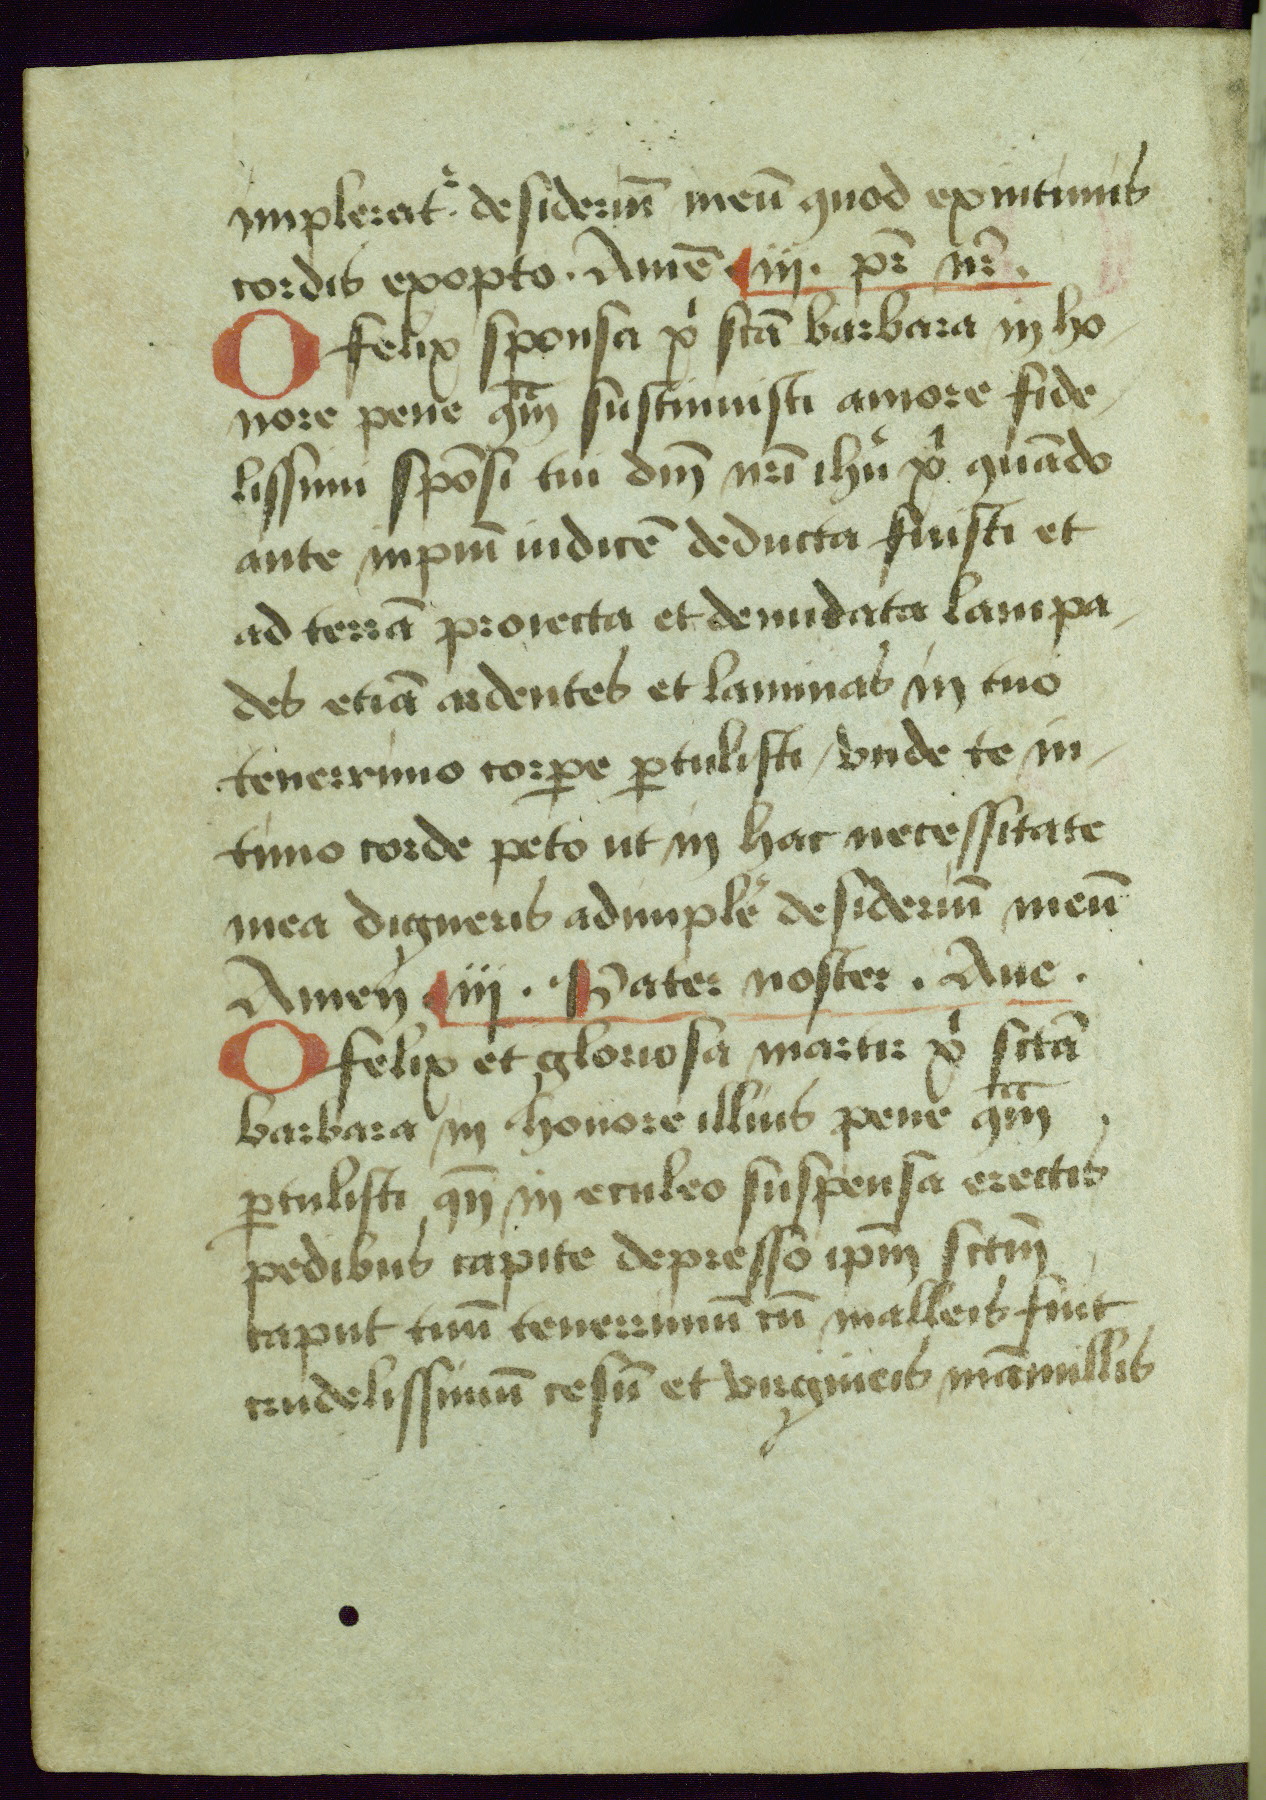 impleat̾ desideriū meū quod ex intimis
cordis exopto . Amē . iij . pr̄ nr̄ .
O felix sponsa xp̄i scā barbara in ho
nore pene qu̅ā sustinuisti amore fide,
lissimi spōsi tui dn̄i nr̄i ihū xp̄i quādo
ante inpiū iudicē deducta fuisti et
ad terrā proiecta et denudata lampa,
des etiā ardentes et laminas in tuo
tenerrimo corꝑe ꝑtulisti / vnde te in,
timo corde peto ut in hac necessitate
mea digneris adimplē desideriū meū
Amen . iij . Pater noster . Aue .
O felix et gloriosa martir xp̄i sctā
barbara in honore illius pene qu̅ā
ꝑtulisti qn̄ in eculeo suspensa erectis
pedibus capite depresso ip̄m sctm̄
caput tuū tenerrimū cū malleis fuit
crudelissimū cesū et virgineis māmillis